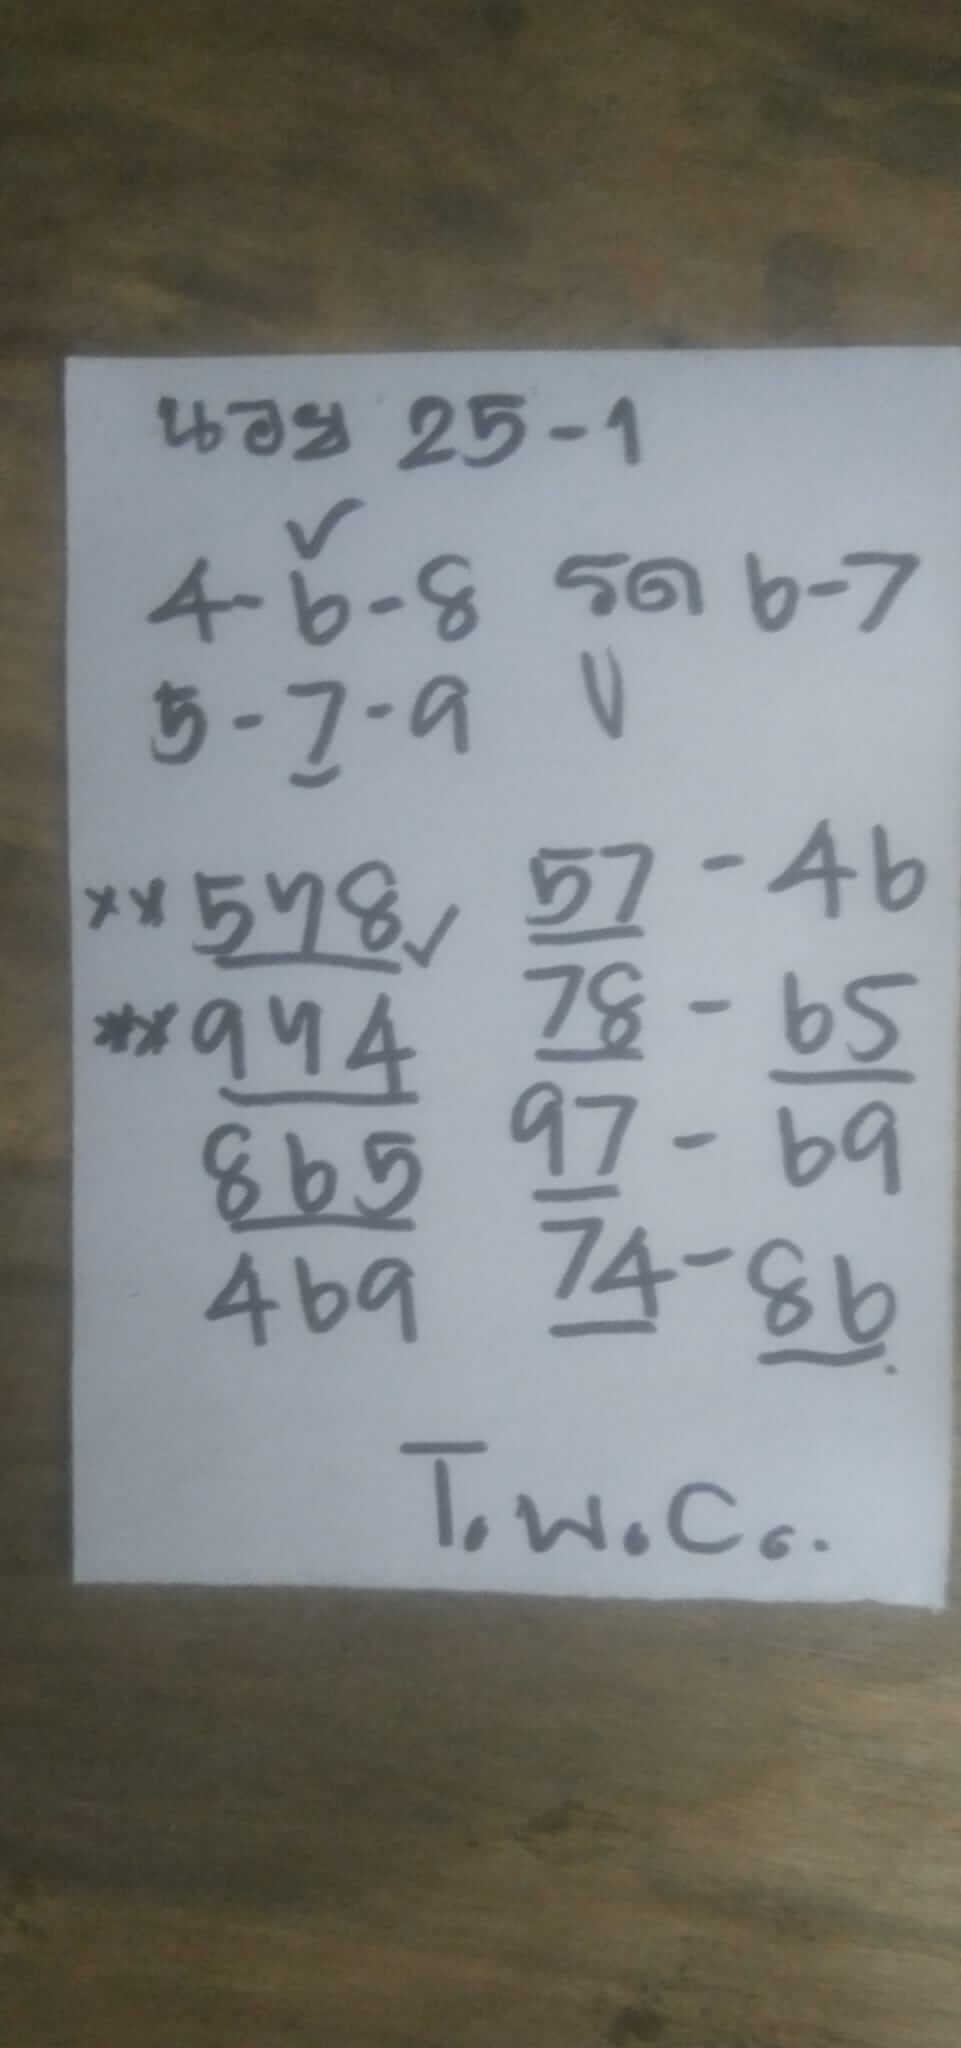 นอย 25-1
✓
4-6-8 รด 6-7
5-7-9 V
xx 578 ✓ 57 - 46
xx 974 78 - 65
865 97 - 69
469 74 - 86.
T.W.C..